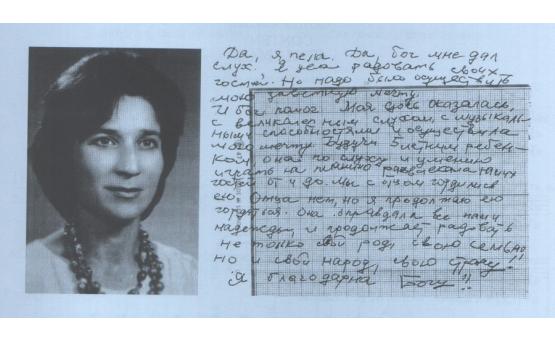 Да, я пела. Да, Бог мне дал
слух. Я пела радовать своих
гостей. Но надо было осуществить
мою мечту.
И Бог помог. Моя дочь оказалась
с великолепным слухом, с музыкаль-
ными способностями и осуществила
мою мечту. Будучи 5летним ребен-
ком, она по слуху и умению
играть на пианино наших
гостей от и до. Мы с отцом гордились
ею. Отца нет, но я продолжаю ею
гордиться. Она оправдала все наши
надежды, и продолжает радовать
не только свой род, свою семью,
но и свой народ, свою страну!!
Я благодарна Богу!!